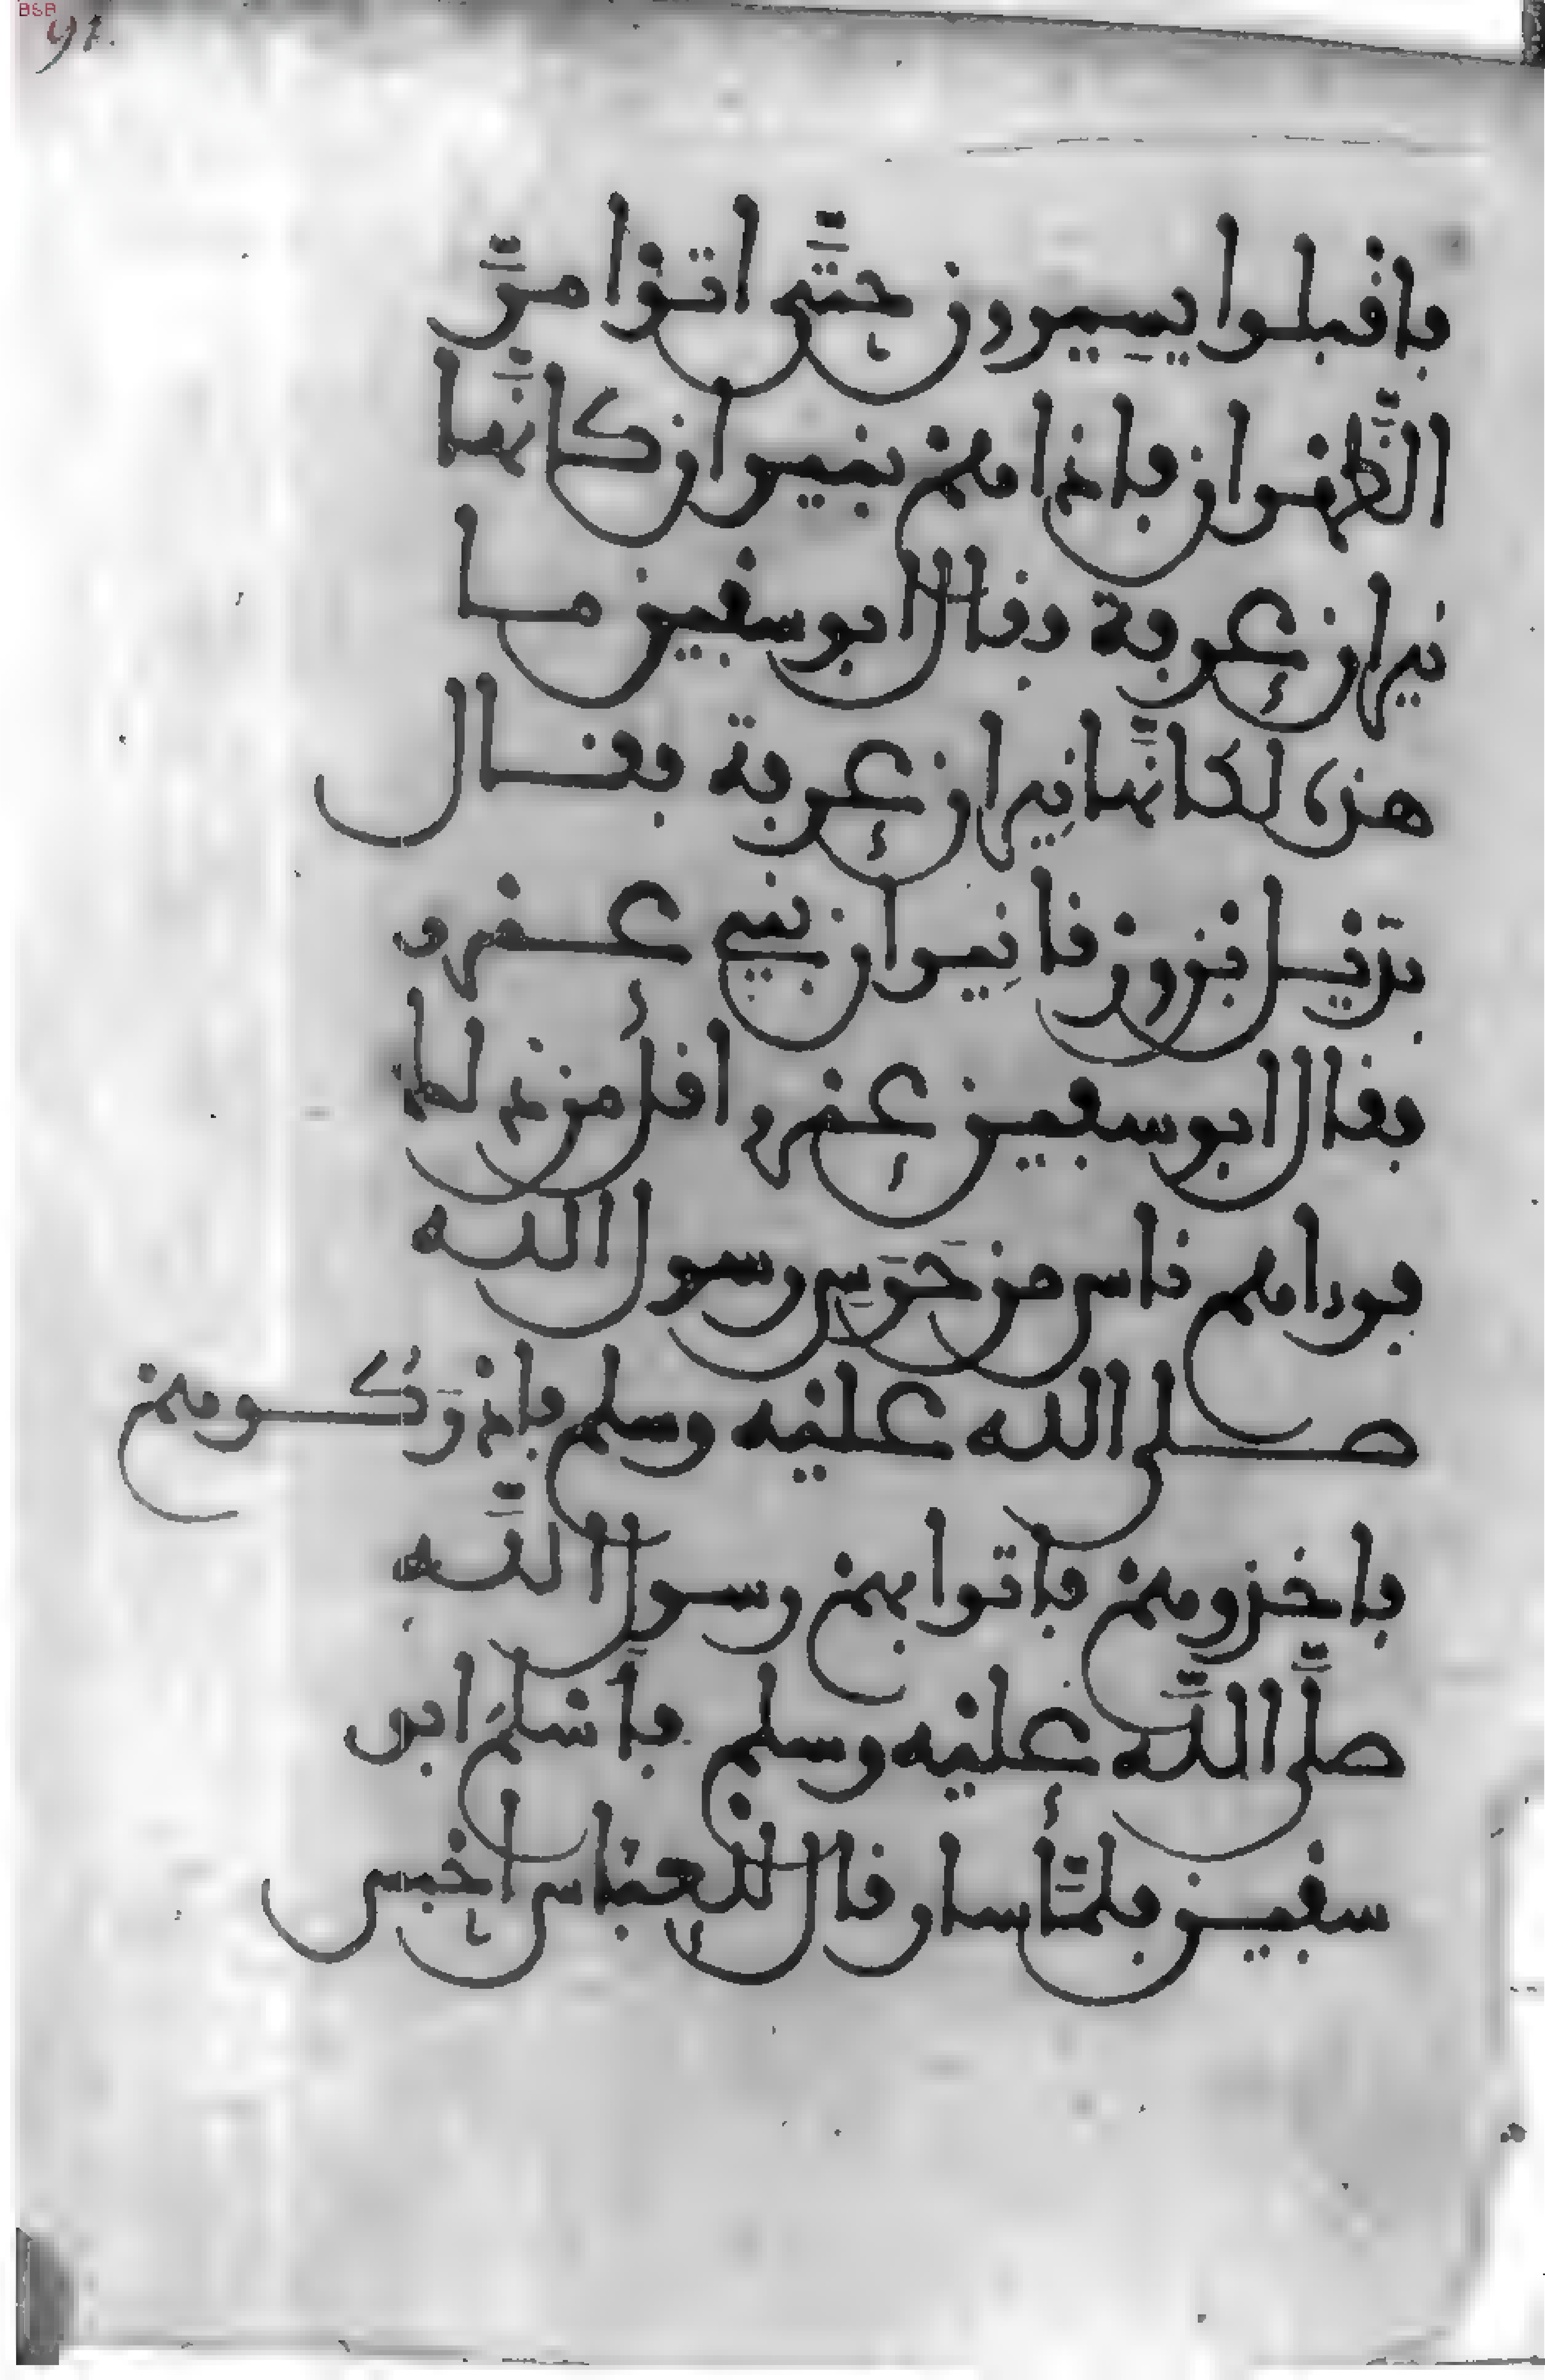 91.
فاقبلوا يسيرون حتَّى اتوا مرَّ
الظَّهران فاذا هم بنيران كانَّها
نيران عرفة فقال ابو سفين ما
هذه لكانَّها نيران عرفة فقال
بديل بن ورقا نيران بني عمرو
فقال ابو سفين عمرو اقل من ذلك
فراهم ناس من حَرَسِ رسول الله
صلى الله عليه وسلم فادرَكوهم
فاخذوهم فاتوا بهم رسول اللَّه
صلَّى اللَّه عليه وسلم فأسْلمَ ابو
سفين فلمَّا سار قال للعبَّاس احبس